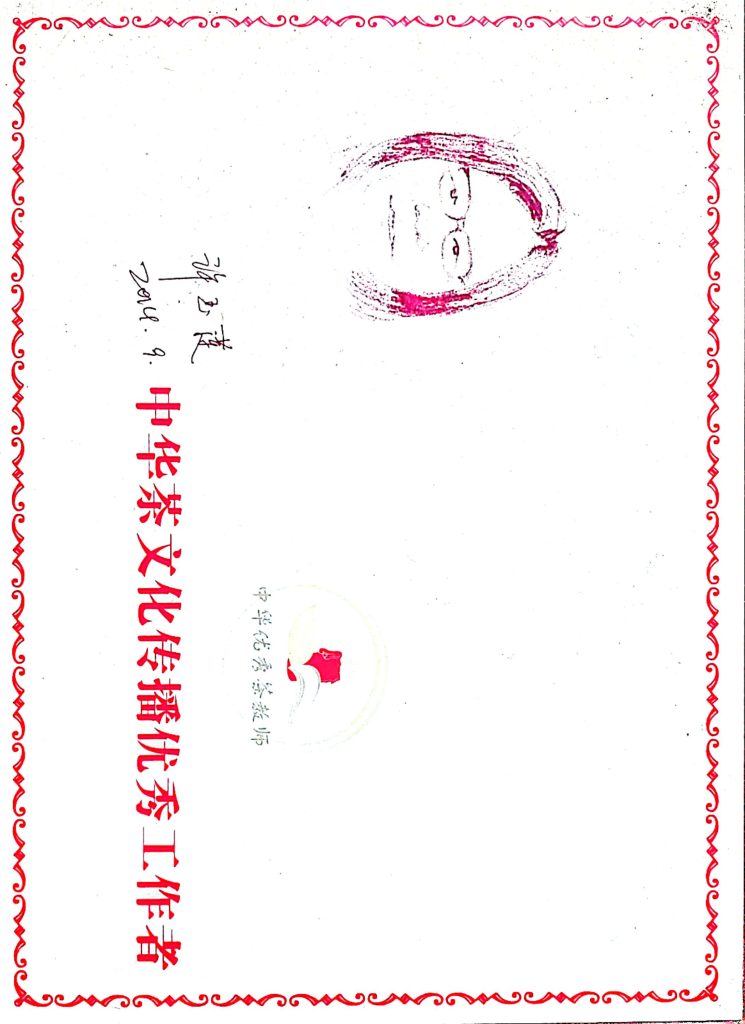 许玉莲
2014.9.
中华优秀茶教师
中华茶文化传播优秀工作者